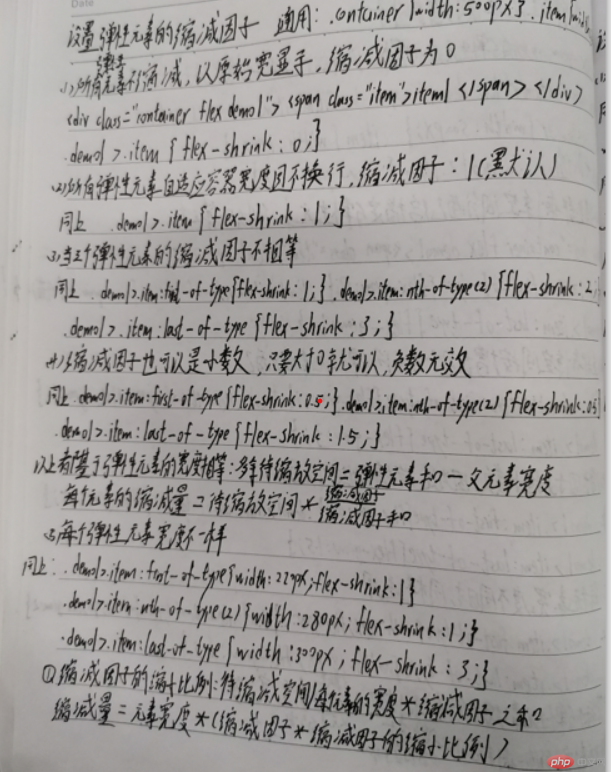 Date
设置弹性元素的缩减因子 通用: .container{width:500px} .item{wid
(1)所有弹性元素不缩减,以原始宽显示,缩减因子为0
<div class="container flex demo1"> <span class="item">item1</span></div>
.demo1>.item{flex-shrink:0;}
(2)所有弹性元素自适应容器宽度且不换行,缩减因子:1(默认)
同上 .demo1>.item{flex-shrink:1;}
(3)当三个弹性元素的缩减因子不相等
同上 .demo1>.item:first-of-type{flex-shrink:1;} .demo1>.item:nth-of-type(2){flex-shrink:2
.demo1>.item:last-of-type{flex-shrink:3;}
(4)缩减因子也可以是小数,只要大于0就可以,负数无效
同上 .demo1>.item:first-of-type{flex-shrink:0.5;} .demo1>.item:nth-of-type(2){flex-shrink:0.5
.demo1>.item:last-of-type{flex-shrink:1.5;}
以上都基于弹性元素的宽度相等:等待缩放空间=弹性元素和 - 父元素宽度
每个元素的缩减量=待缩放空间*缩减因子
缩减因子和
(5)每个弹性元素宽度不一样
同上: .demo1>.item:first-of-type{width:220px;flex-shrink:1}
.demo1>.item:nth-of-type(2){width:280px;flex-shrink:1;}
.demo1>.item:last-of-type{width:300px;flex-shrink:3;}
①缩减因子的缩小比例:待缩减空间/每个元素的宽度*缩减因子之和
缩减量=元素宽度*(缩减因子*缩减因子的缩小比例)
php